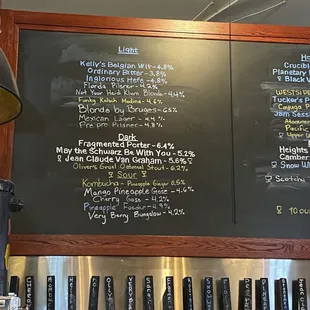 Light
Kelly's Belgian Wit - 4.8%
Ordinary Bitter - 3.8%
Inglorious Hefe - 4.8%
Florida Pilsner - 4.2%
Not Your Heidi Klum Blonde - 4.4%
Funky Kolsch Medina - 4.6%
Blonde by Bruges - 6.5%
Mexican Lager - 4.4%
Pre-pro Pilsner - 4.8%
Dark
Fragmented Porter - 6.4%
May the Schwarz Be With You - 5.2%
Jean Claude Van Graham - 5.6%
Oliver's Gruel Oatmeal Stout - 6.2%
Sour
Kombucha - Pineapple Ginger 0.5%
Mango Pineapple Gose - 4.6%
Cherry Gose - 4.2%
Pineapple Feeder - 4.9%
Very Barry Bungalow - 4.2%
Crucib
Planetary
Black V
Tucker's P
Cayuga P
Jam Sessi
Pacific
Upper
Heights
Camber
Snow
Scotch
10 ou